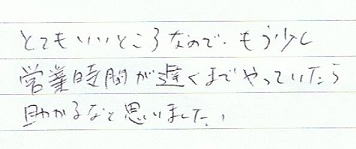 とてもいいところなので、もう少し
営業時間が遅くまでやっていたら
助かるなと思いました。